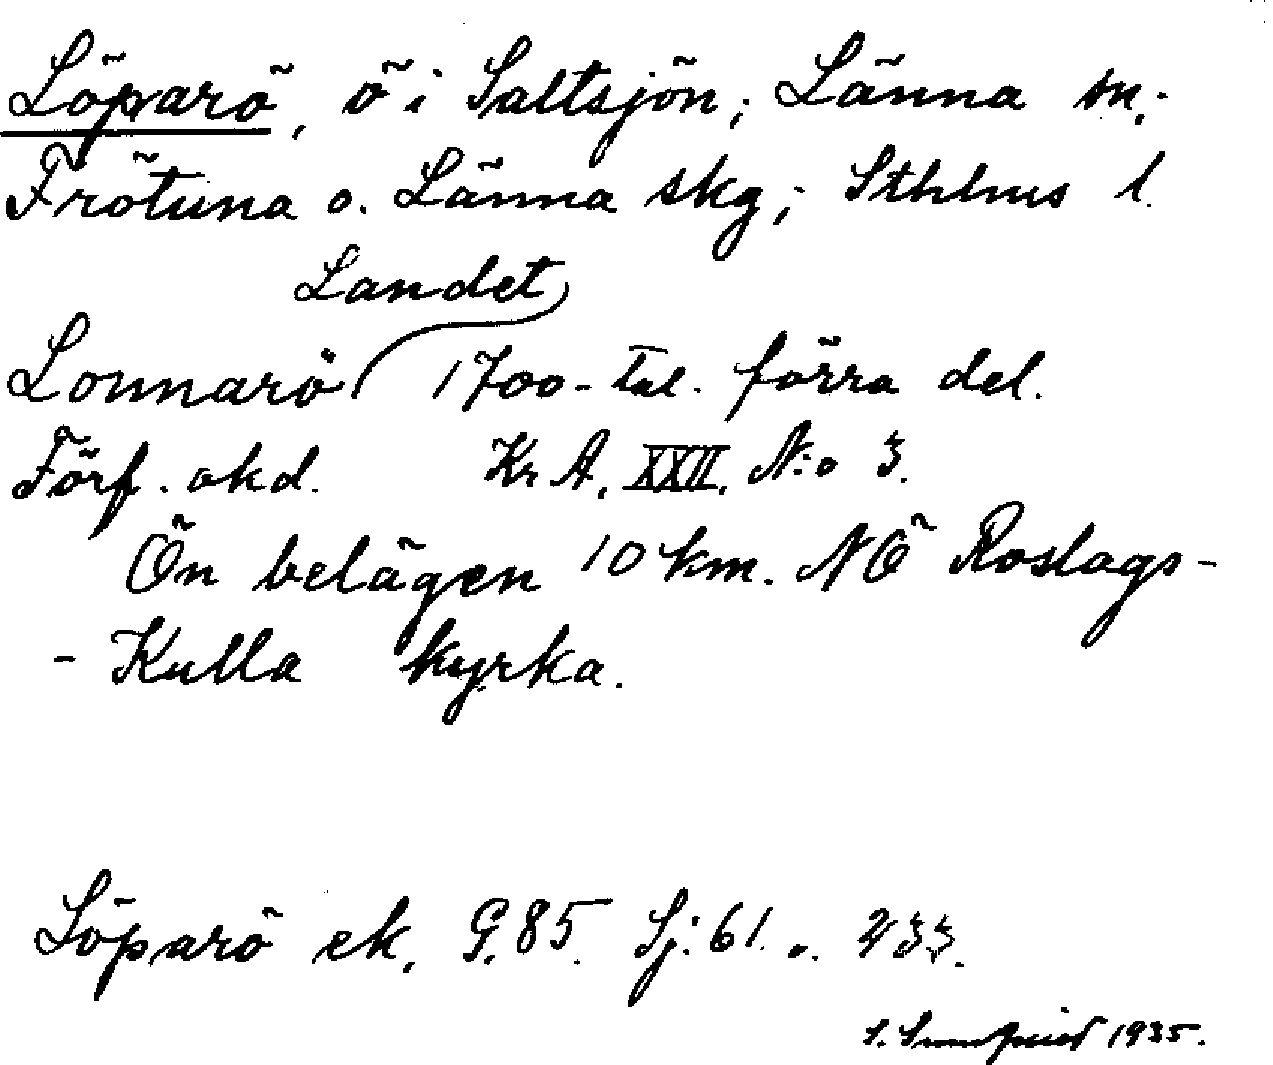 Löparö, ö i Saltsjön; Länna sn.
Frötuna o. Länna skg; Sthlms l.
Landet
Lonnarö 1700-tal. förra del.
Förf. okd. Kr A. XXII. N:o 3.
Ön belägen 10 km. NÖ Roslags-
- Kulla kyrka.
Löparö ek. G. 85. Sj: 61. o. 233.
S. 1935.